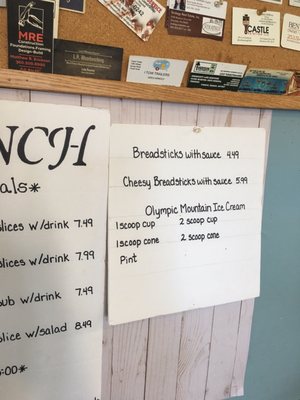 MRE
MASTER
FOUNDATIONS
& FRAMING
Design-Build
CASTLE
I TOW TRAILERS
NCH
als*
lices w/drink 7.49
lices w/drink 7.99
ub w/drink 7.49
lice w/salad 8.49
:00*
Breadsticks with sauce 4.49
Cheesy Breadsticks with sauce 5.99
Olympic Mountain Ice Cream
1 scoop cup 2 scoop cup
1 scoop cone 2 scoop cone
Pint